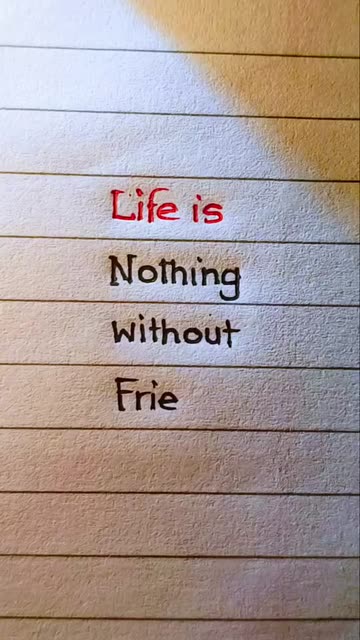 Life is
Nothing
without
Frie